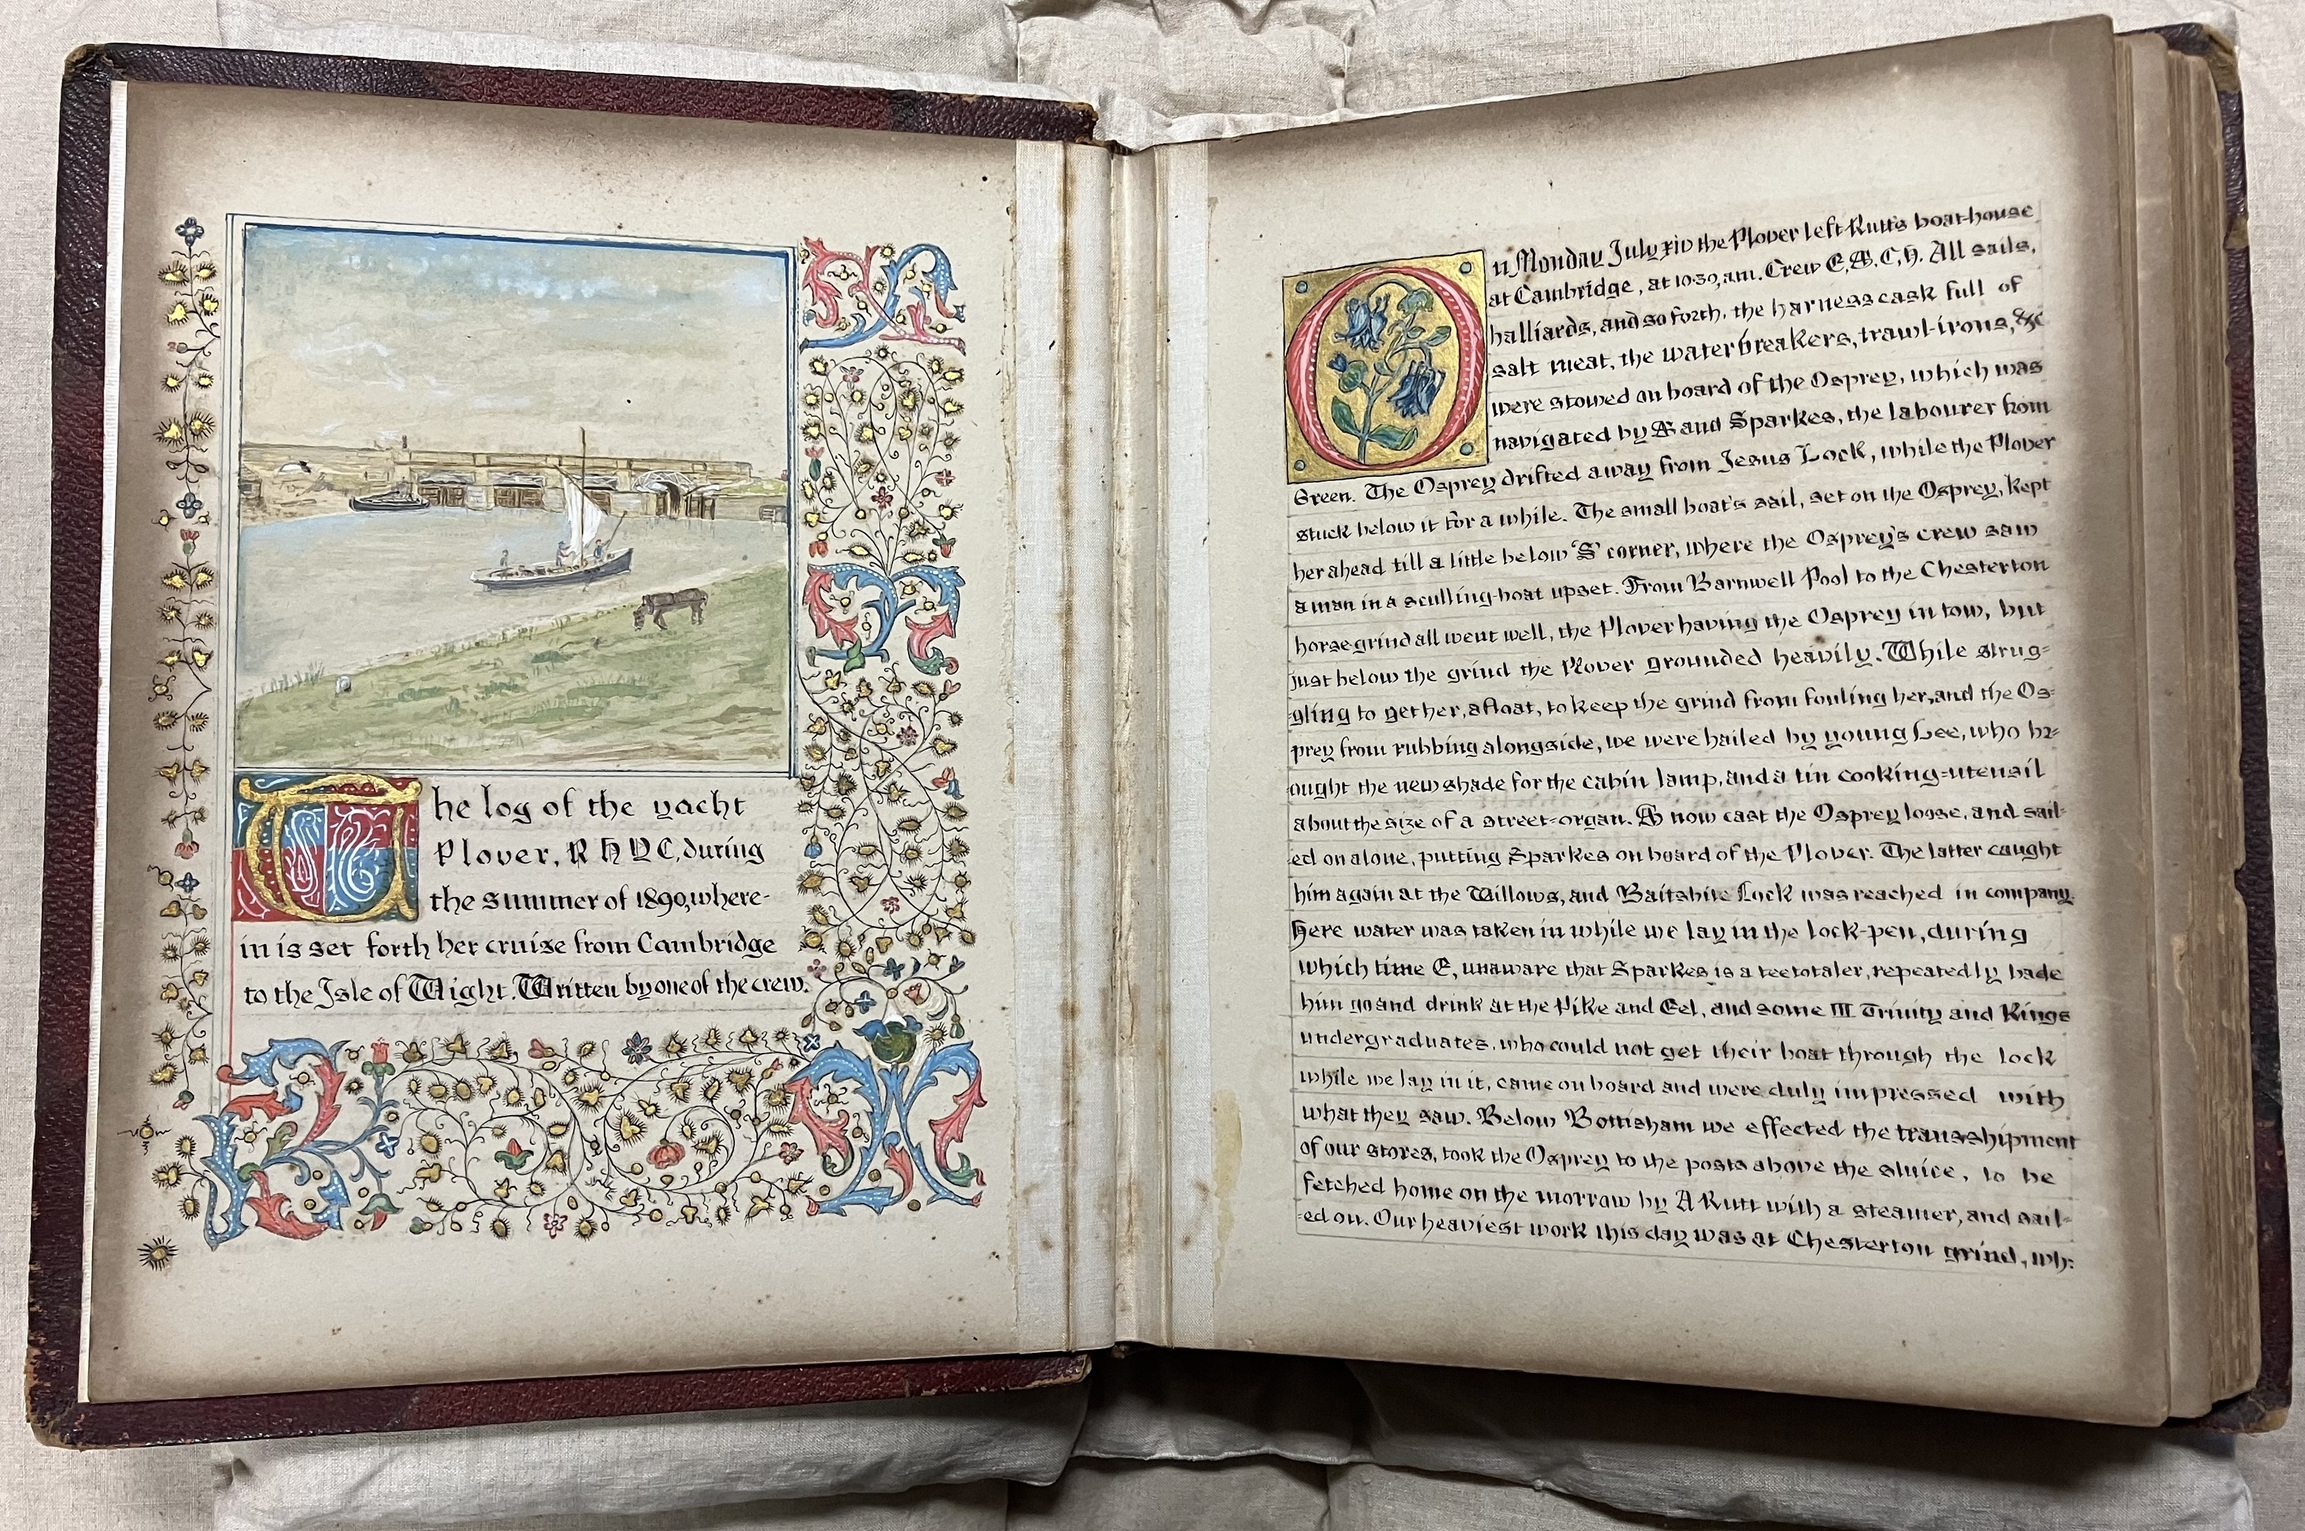 The log of the yacht
Plover, R H Y C, during
the summer of 1890, where-
in is set forth her cruise from Cambridge
to the Isle of Wight. Written by one of the crew.
On Monday July xiv the Plover left Rutt's boat-house
at Cambridge, at 10.30, am. Crew E, A, C, H. All sails,
halliards, and so forth, the harness cask full of
salt meat, the water breakers, trawl-irons, &c
were stowed on board of the Osprey, which was
navigated by A and Sparkes, the labourer from
Green. The Osprey drifted away from Jesus Lock, while the Plover
stuck below it for a while. The small boat's sail, set on the Osprey, kept
her ahead till a little below 'S' corner, where the Osprey's crew saw
a man in a sculling-boat upset. From Barnwell Pool to the Chesterton
horse-grind all went well, the Plover having the Osprey in tow, but
just below the grind the Plover grounded heavily. While strug=
=gling to get her, afloat, to keep the grind from fouling her, and the Os=
prey from rubbing alongside, we were hailed by young Lee, who br=
ought the new shade for the cabin lamp, and a tin cooking=utensil
about the size of a street=organ. A now cast the Osprey loose, and sail=
ed on alone, putting Sparkes on board of the Plover. The latter caught
him again at the Willows, and Baitsbite Lock was reached in company.
Here water was taken in while we lay in the lock-pen, during
which time E, unaware that Sparkes is a teetotaler, repeatedly bade
him go and drink at the Pike and Eel, and some III Trinity and Kings
undergraduates, who could not get their boat through the lock
while we lay in it, came on board and were duly impressed with
what they saw. Below Bottisham we effected the transshipment
of our stores, took the Osprey to the posts above the sluice, to be
fetched home on the morrow by A Rutt with a steamer, and sail=
=ed on. Our heaviest work this day was at Chesterton grind, wh: